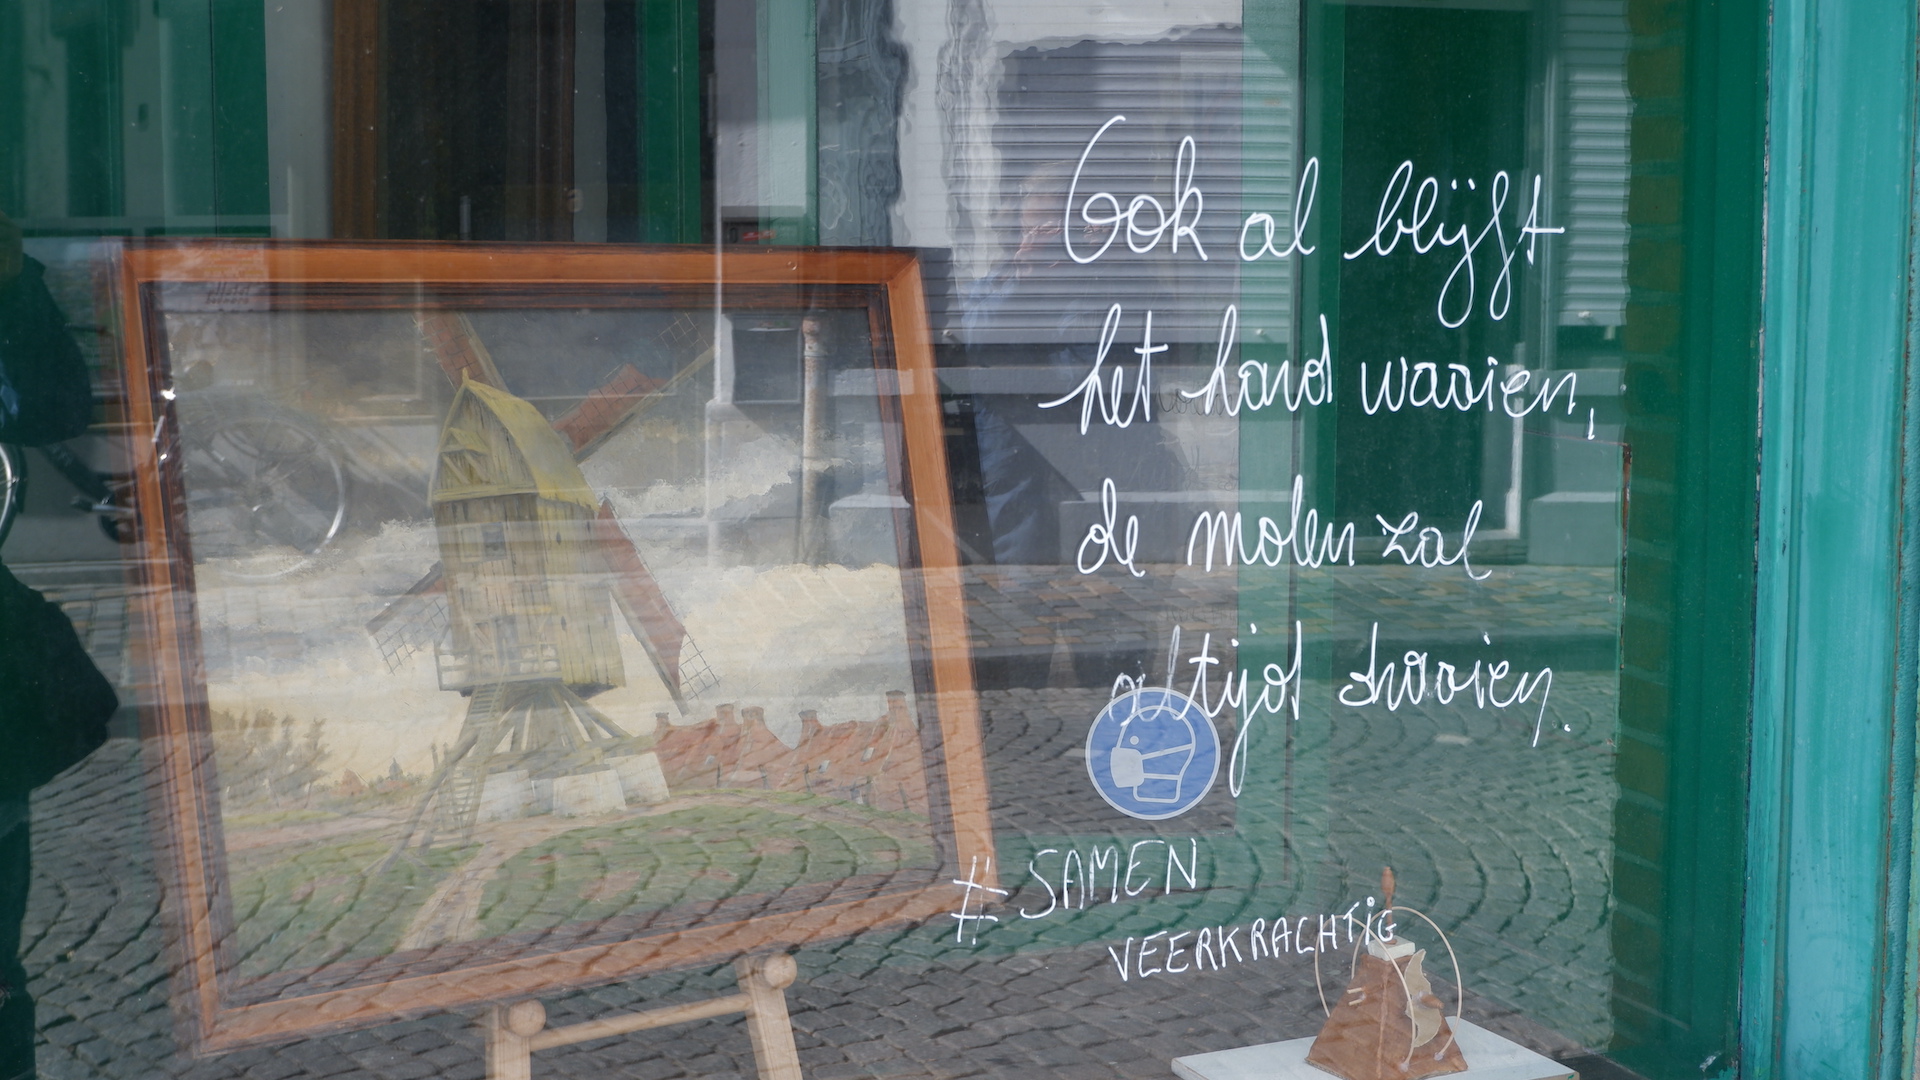 Ook al blijft
het hard waaien,
de molen zal
altijd draaien.
# SAMEN
VEERKRACHTIG